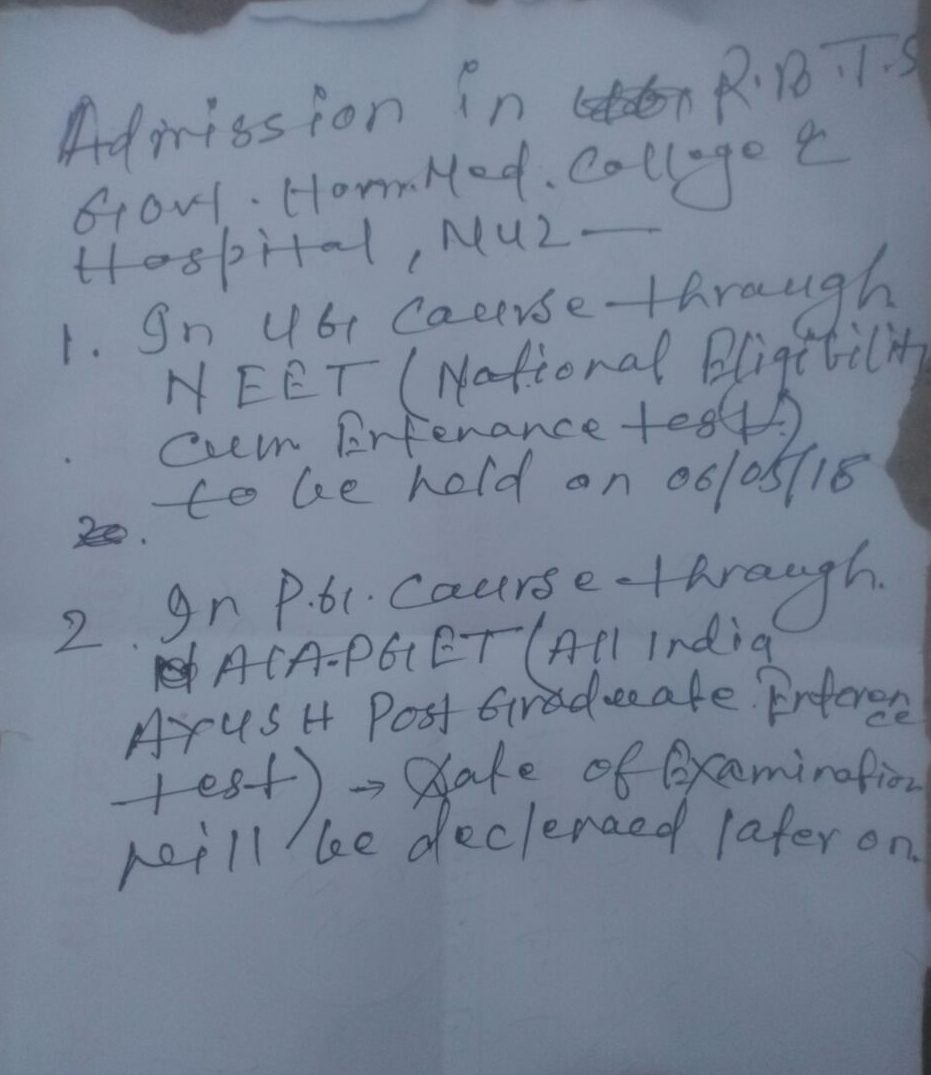 Admission in R.B.T.S
Govt. Hom.Med. College &
Hospital, MUZ —
1. In UG Course through
NEET (National Eligibility
Cum Enterance test)
to be held on 06/05/18
2. In P.G. Course through.
AIA-PGET (All India
AYUSH Post Graduate Enteren
ce
test) → Date of Examination
will be decleraed later on.